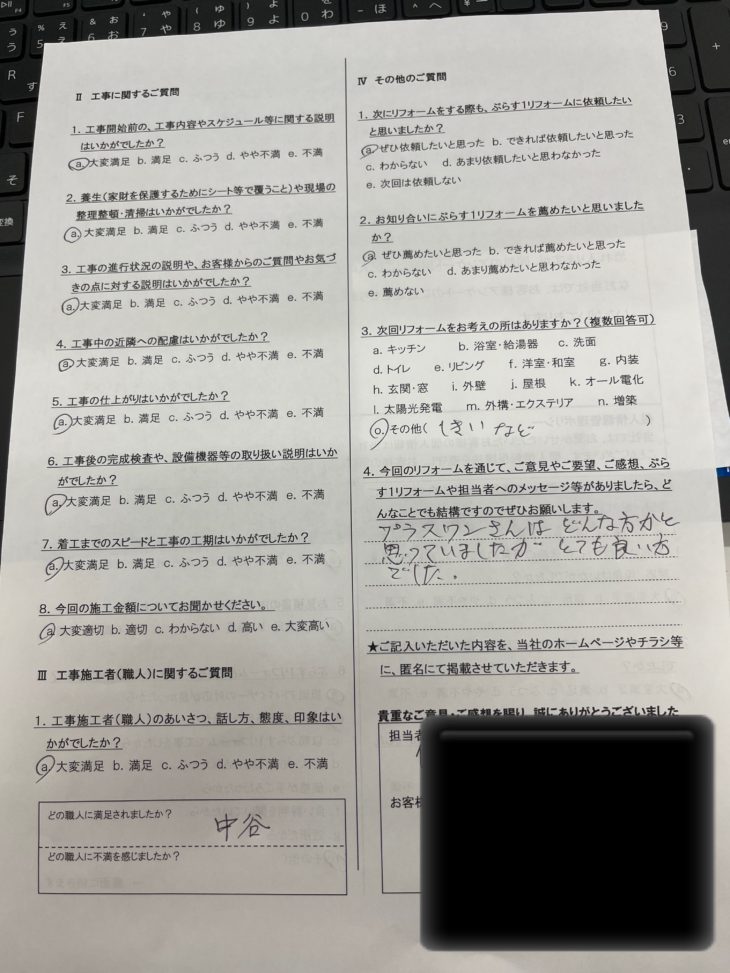 Ⅱ 工事に関するご質問
1. 工事開始前の、工事内容やスケジュール等に関する説明
はいかがでしたか?
a. 大変満足 b. 満足 c. ふつう d. やや不満 e. 不満
2. 養生(家財を保護するためにシート等で覆うこと)や現場の
整理整頓・清掃はいかがでしたか?
a. 大変満足 b. 満足 c. ふつう d. やや不満 e. 不満
3. 工事の進行状況の説明や、お客様からのご質問やお気づ
きの点に対する説明はいかがでしたか?
a. 大変満足 b. 満足 c. ふつう d. やや不満 e. 不満
4. 工事中の近隣への配慮はいかがでしたか?
a. 大変満足 b. 満足 c. ふつう d. やや不満 e. 不満
5. 工事の仕上がりはいかがでしたか?
a. 大変満足 b. 満足 c. ふつう d. やや不満 e. 不満
6. 工事後の完成検査や、設備機器等の取り扱い説明はいか
がでしたか?
a. 大変満足 b. 満足 c. ふつう d. やや不満 e. 不満
7. 着工までのスピードと工事の工期はいかがでしたか?
a. 大変満足 b. 満足 c. ふつう d. やや不満 e. 不満
8. 今回の施工金額についてお聞かせください。
a. 大変適切 b. 適切 c. わからない d. 高い e. 大変高い
Ⅲ 工事施工者(職人)に関するご質問
1. 工事施工者(職人)のあいさつ、話し方、態度、印象はい
かがでしたか?
a. 大変満足 b. 満足 c. ふつう d. やや不満 e. 不満
どの職人に満足されましたか?
中谷
どの職人に不満を感じましたか?
Ⅳ その他のご質問
1. 次にリフォームをする際も、ぷらす1リフォームに依頼したい
と思いましたか?
a. ぜひ依頼したいと思った b. できれば依頼したいと思った
c. わからない d. あまり依頼したいと思わなかった
e. 次回は依頼しない
2. お知り合いにぷらす1リフォームを薦めたいと思いました
か?
a. ぜひ薦めたいと思った b. できれば薦めたいと思った
c. わからない d. あまり薦めたいと思わなかった
e. 薦めない
3. 次回リフォームをお考えの所はありますか?(複数回答可)
a. キッチン b. 浴室・給湯器 c. 洗面
d. トイレ e. リビング f. 洋室・和室 g. 内装
h. 玄関・窓 i. 外壁 j. 屋根 k. オール電化
l. 太陽光発電 m. 外構・エクステリア n. 増築
o. その他( しきい など )
4. 今回のリフォームを通じて、ご意見やご要望、ご感想、ぷら
す1リフォームや担当者へのメッセージ等がありましたら、ど
んなことでも結構ですのでぜひお願いします。
プラスワンさんは どんな方かと
思っていましたが とても良い方
でした.
★ご記入いただいた内容を、当社のホームページやチラシ等
に、匿名にて掲載させていただきます。
貴重なご意見・ご感想を賜り、誠にありがとうございました
担当者
お客様